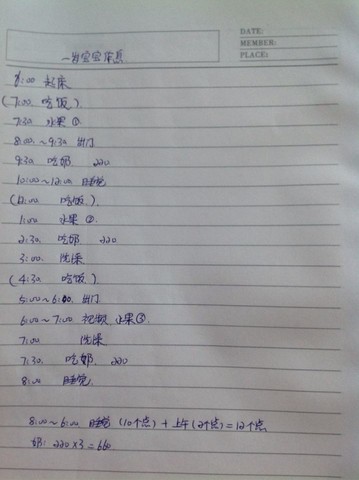 DATE:
MEMBER:
PLACE:
一岁宝宝作息
6:00 起床
(7:00 吃饭)
7:30 水果①
8:00~9:30 出门
9:30 吃奶 220
10:00~12:00 睡觉
(12:00 吃饭)
1:00 水果②
2:30 吃奶 220
3:00 洗澡
(4:30 吃饭)
5:00~6:00 出门
6:00~7:00 水果③
7:00 洗澡
7:30 吃奶 220
8:00 睡觉
8:00~6:00 睡觉 (10个点) + 上午(2个点)=12个点
奶: 220×3=660